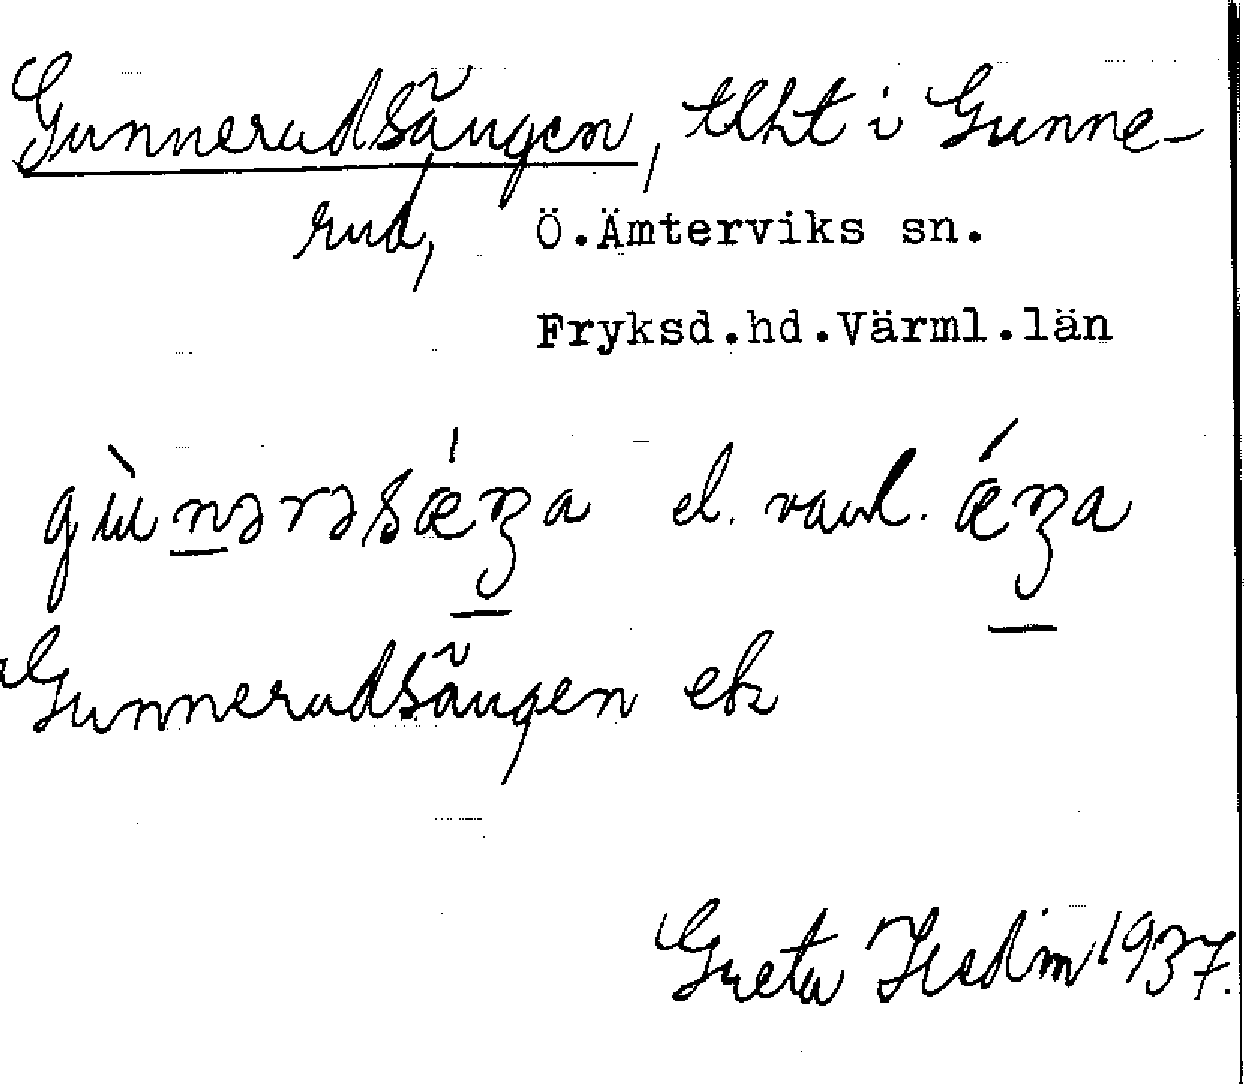 Gunnerudsängen, tlht i Gunne-
rud, Ö.Ämterviks sn.
Fryksd.hd.Värml.län
gùnǝrǝsǽŋa el. vanl. ǽŋa
Gunnerudsängen ek
Greta Hedin 1937.